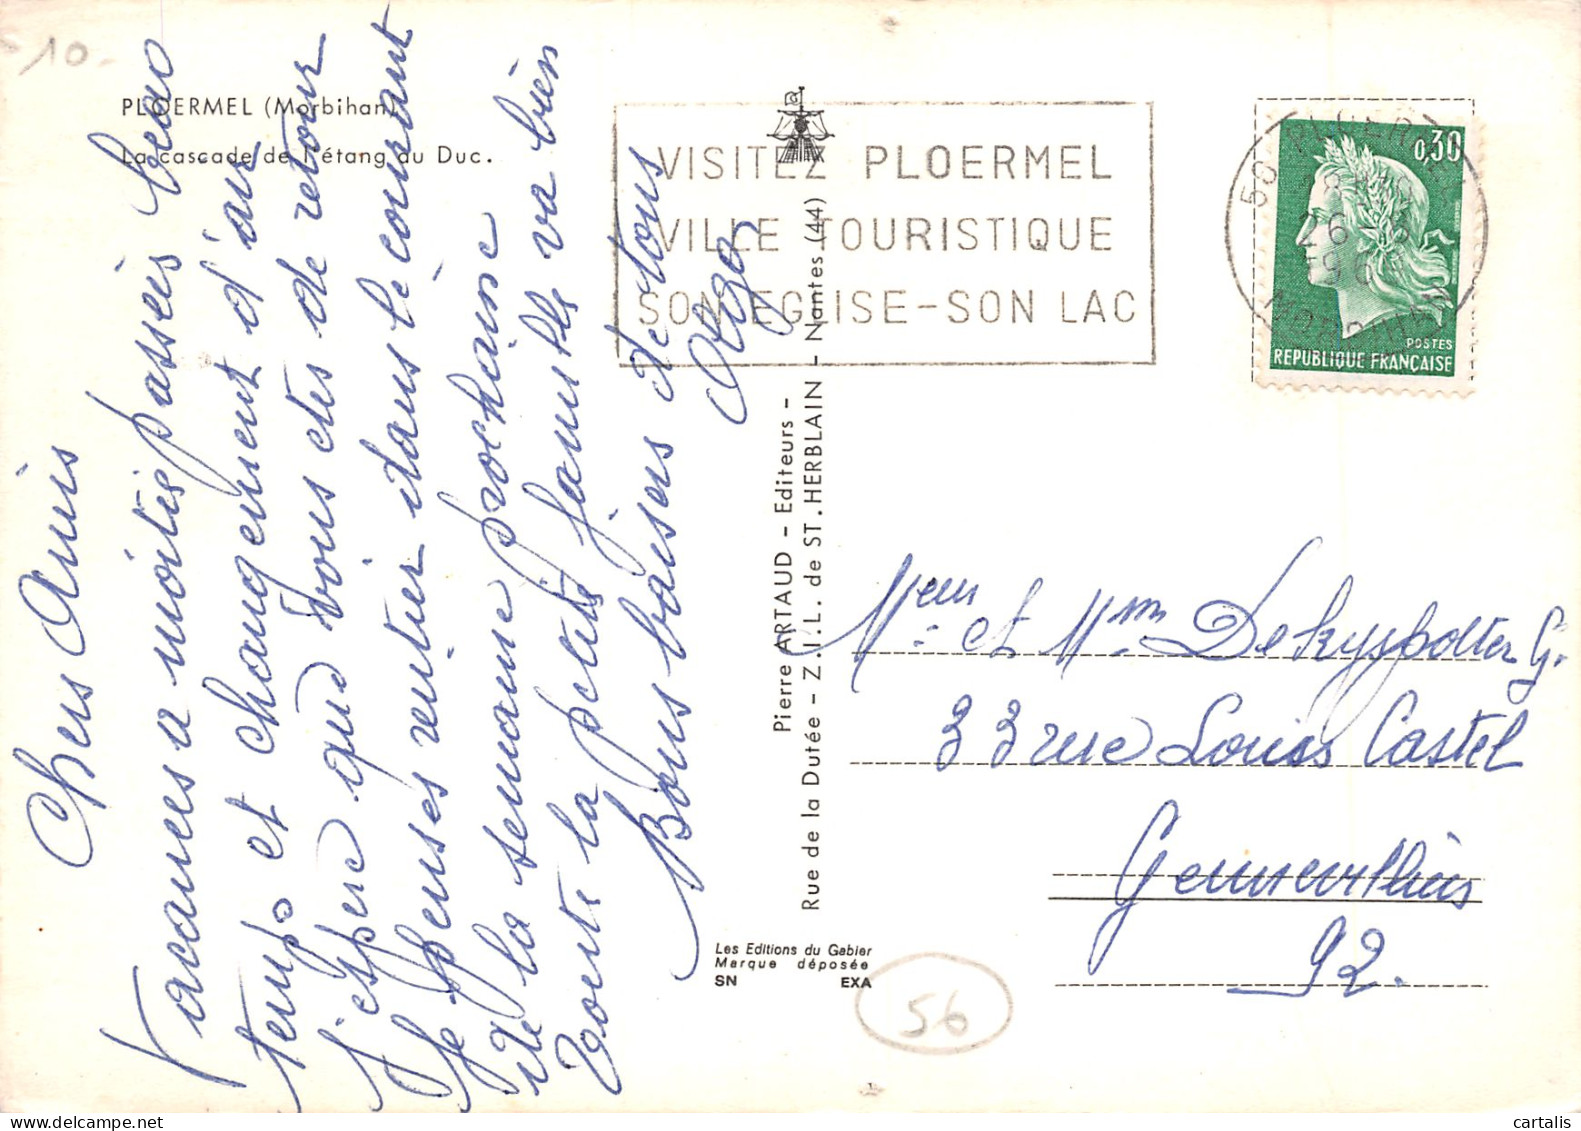 10.-
PLOERMEL (Morbihan)
La cascade de l'étang du Duc.
Chers Amis
Vacances a moitié passées beau
temps et changement d'air
J'espère que vous etes de retour
Je penses rentrer dans le courant
de la semaine prochaine
Toute la petite famille va bien
Bons baisers de tous
VISITEZ PLOERMEL
VILLE TOURISTIQUE
SON EGLISE-SON LAC
56 PLOERMEL
26
MORBIHAN
0,30
POSTES
REPUBLIQUE FRANÇAISE
Pierre ARTAUD - Editeurs -
Rue de la Dutée - Z.I.L. de ST. HERBLAIN - Nantes (44)
Les Editions du Gabier
Marque déposée
SN EXA
Meur et Mme Dekyspotter G.
33 rue Louis Castel
Gennevilliers
92.
56
cartalis